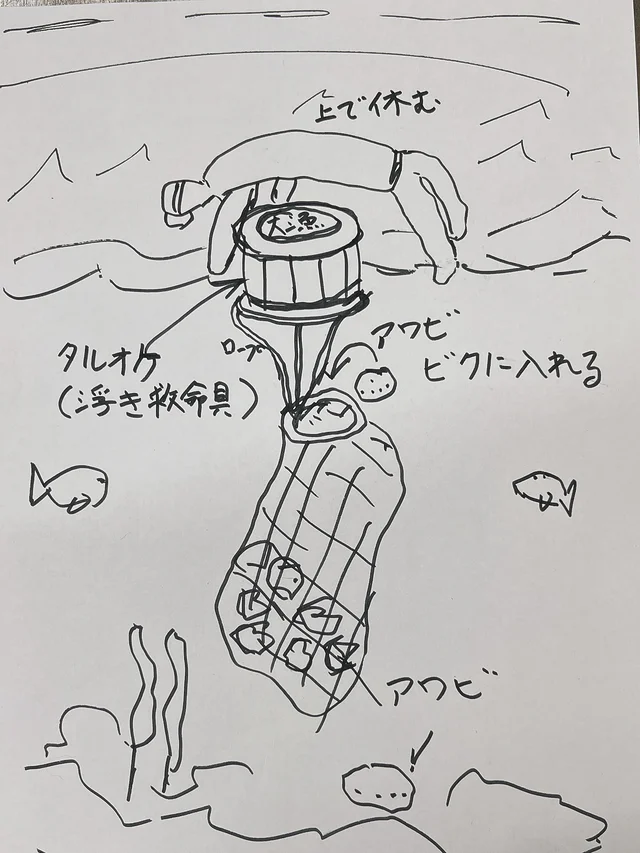 上で休む
大漁
ロープ
タルオケ
(浮き救命具)
アワビ
ビクに入れる
アワビ